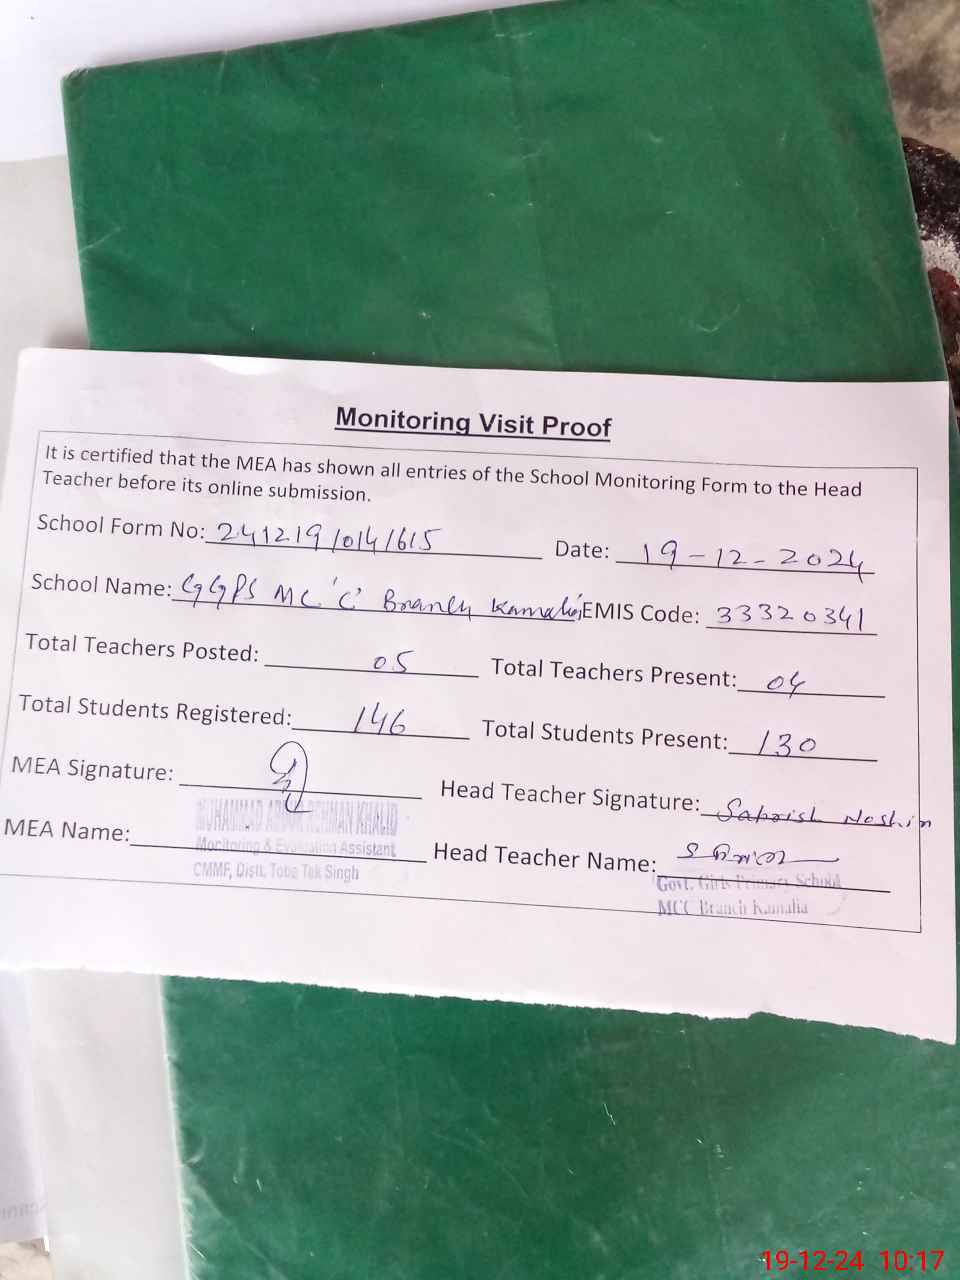 Monitoring Visit Proof
It is certified that the MEA has shown all entries of the School Monitoring Form to the Head
Teacher before its online submission.
School Form No: 241219/014/615 Date: 19-12-2024
School Name: GGPS MC 'C' Branch Kamalia EMIS Code: 33320341
Total Teachers Posted: 05 Total Teachers Present: 04
Total Students Registered: 146 Total Students Present: 130
MEA Signature: Head Teacher Signature: Sabrish Noshin
MUHAMMAD ABDUR REHMAN KHALID
MEA Name: Head Teacher Name:
Monitoring & Evaluation Assistant
CMMF, Distt. Toba Tek Singh
Govt. Girls Primary School
MCC Branch Kamalia
19-12-24 10:17